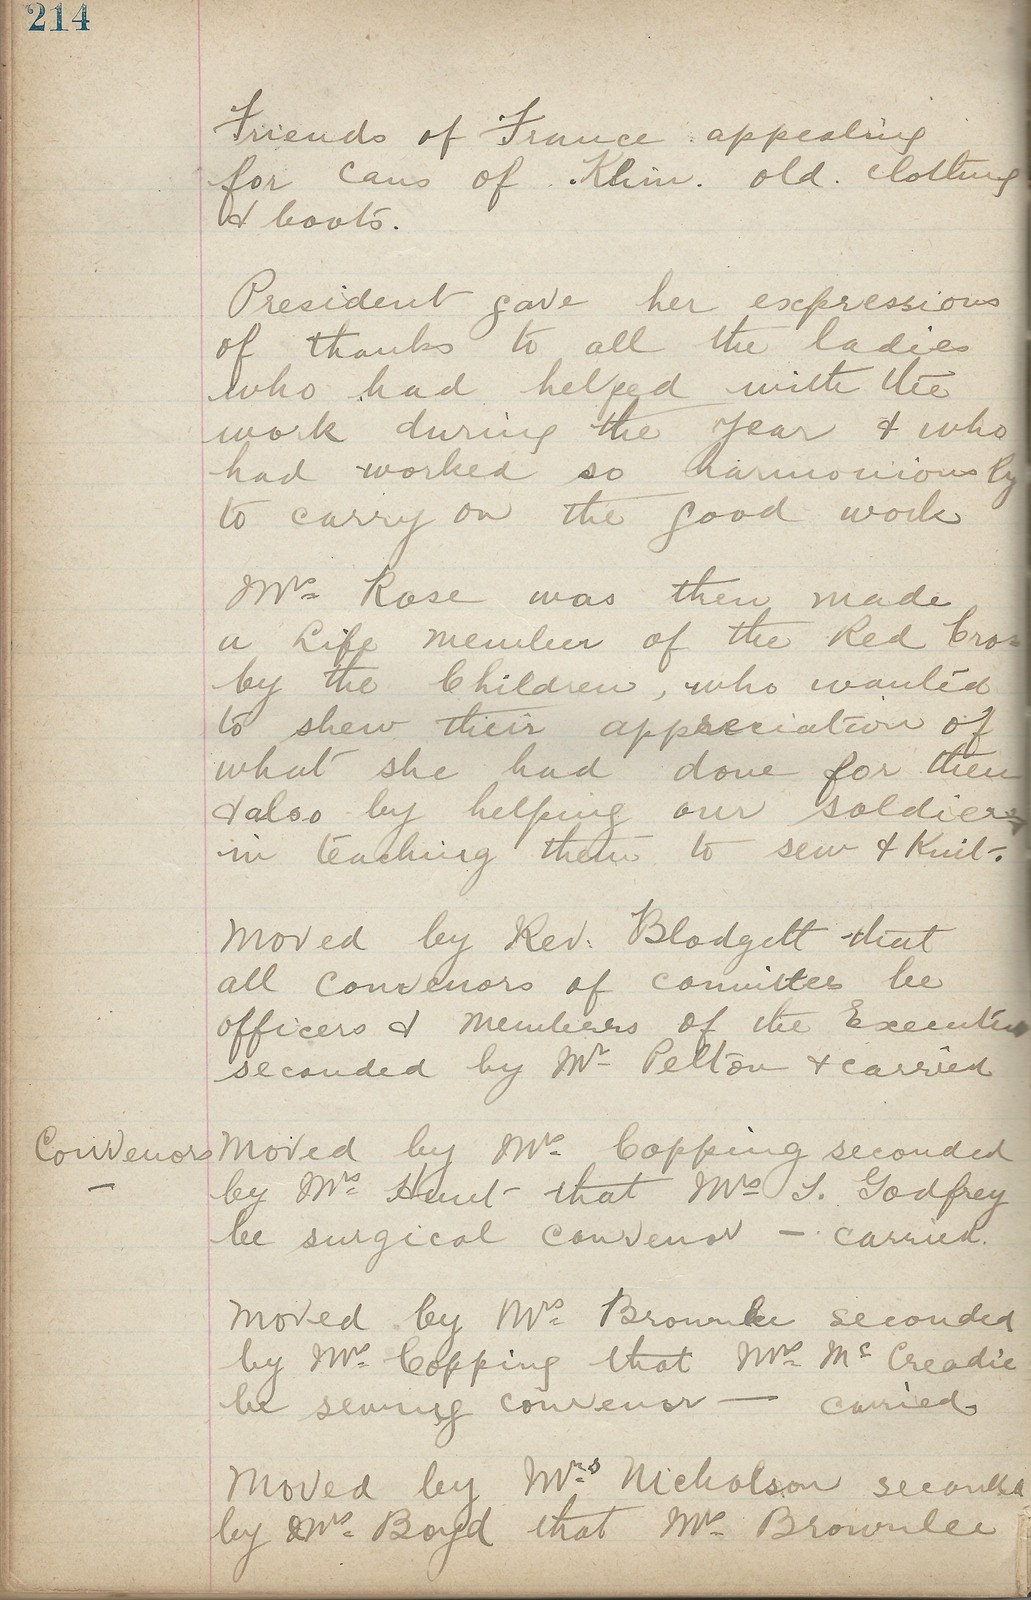 214
Friends of France appealing
for cans of Klim. old. clothing
& boots.
President gave her expressions
of thanks to all the ladies
who had helped with the
work during the year & who
had worked so harmoniously
to carry on the good work
Mrs Rose was then made
a Life member of the Red Cross
by the Children, who wanted
to shew their appreciation of
what she had done for them
& also by helping our soldiers
in teaching them to sew & Knit.
Moved by Rev. Blodgett that
all convenors of committes be
officers & members of the Executive
seconded by Mr Pelton & carried
Convenors
—
Moved by Mrs Copping seconded
by Mrs Hunt that Mrs S. Godfrey
be surgical convenor — carried.
Moved by Mrs Brownlee seconded
by Mrs Copping that Mrs McCreadie
be sewing convenor — carried
Moved by Mrs Nicholson seconded
by Mrs Boyd that Mrs Brownlee